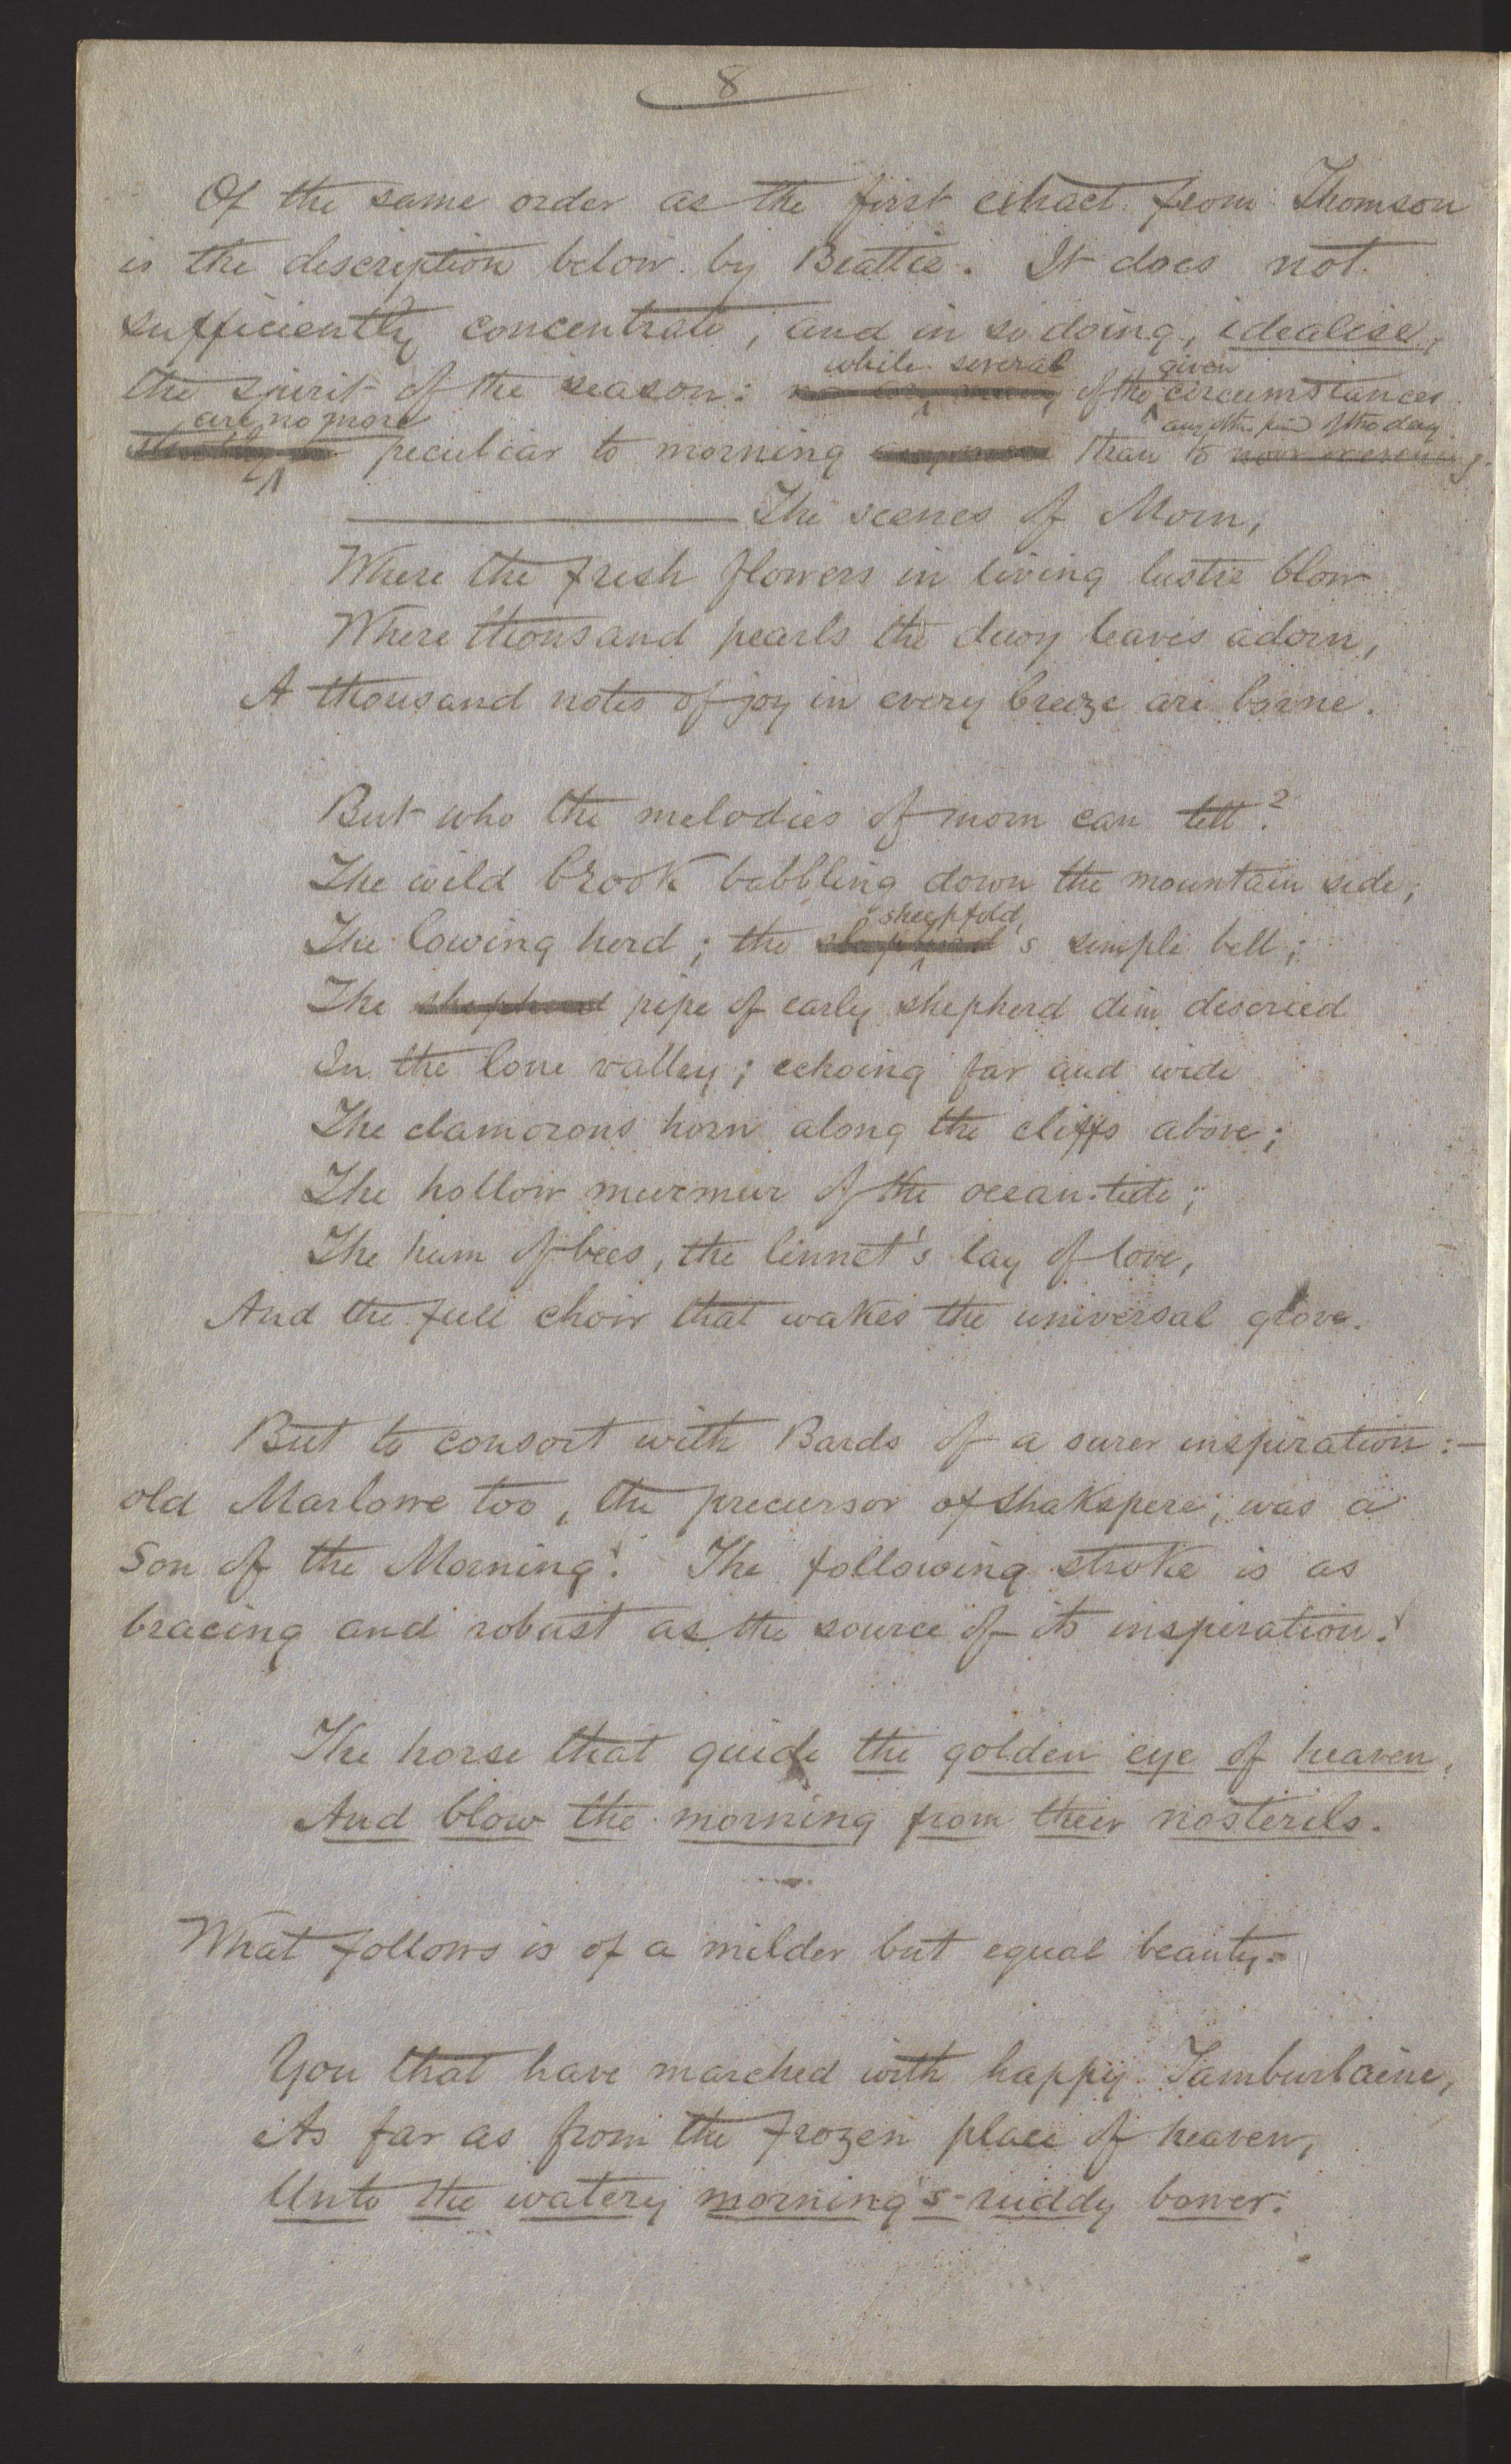 8
Of the same order as the first extract from Thomson
is the description below by Beattie. It does not
sufficiently concentrate, and in so doing, idealise,
while several given
the spirit of the season: of the circumstances
are no more any other period of the day
peculiar to morning than to
The scenes of Morn,
Where the fresh flowers in living lustre blow
Where thousand pearls the dewy leaves adorn,
A thousand notes of joy in every breeze are borne.
But who the melodies of morn can tell?
The wild brook babbling down the mountain side;
sheepfold
The lowing herd; the shepherd's simple bell;
The shepherd pipe of early shepherd dim descried
In the lone valley; echoing far and wide
The clamorous horn along the cliffs above;
The hollow murmur of the ocean-tide;
The hum of bees, the linnet's lay of love,
And the full choir that wakes the universal grove.
But to consort with Bards of a surer inspiration:—
old Marlowe too, the precursor of Shakspere, was a
Son of the Morning! The following stroke is as
bracing and robust as the source of its inspiration!
The horse that guide the golden eye of heaven,
And blow the morning from their nosterils.
What follows is of a milder but equal beauty:
You that have marched with happy Tamburlaine,
As far as from the frozen place of heaven,
Unto the watery morning's ruddy bower: